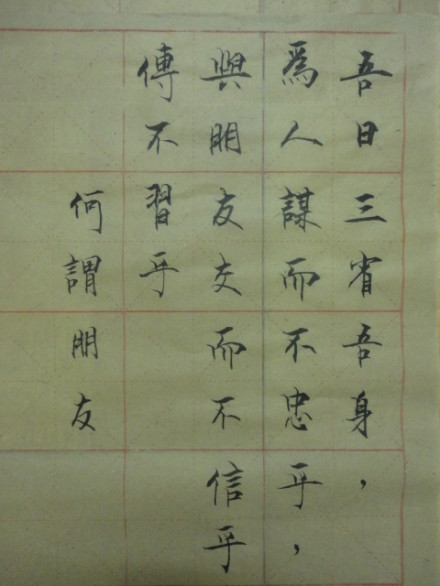 吾日三省吾身，
為人謀而不忠乎，
與朋友交而不信乎
傳不習乎
何謂朋友